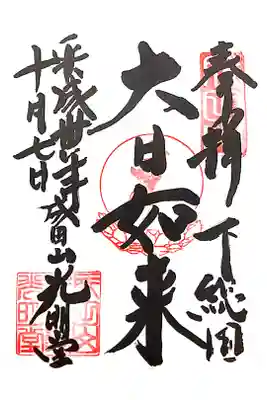 奉拝
下総国
大日如来
平成丗年
十月七日
成田山光明堂